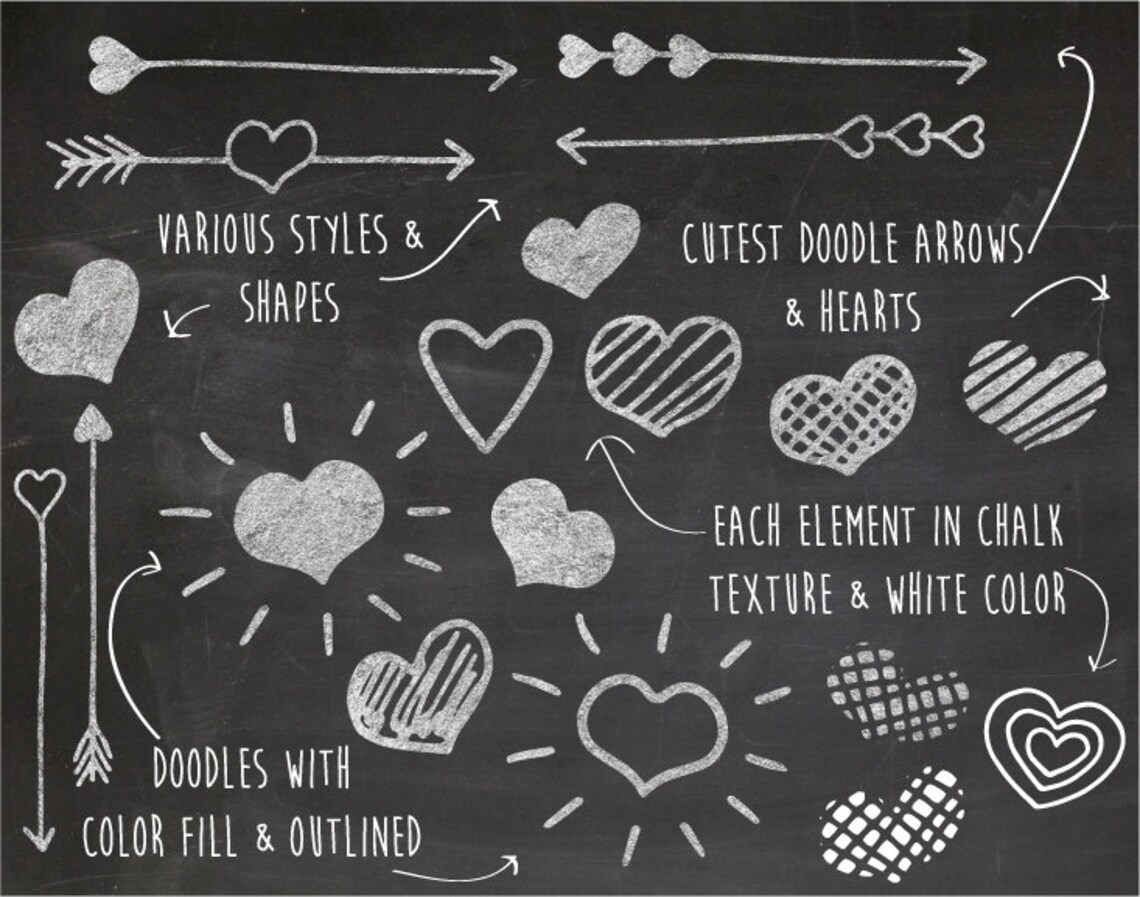 VARIOUS STYLES &
SHAPES
CUTEST DOODLE ARROWS
& HEARTS
EACH ELEMENT IN CHALK
TEXTURE & WHITE COLOR
DOODLES WITH
COLOR FILL & OUTLINED